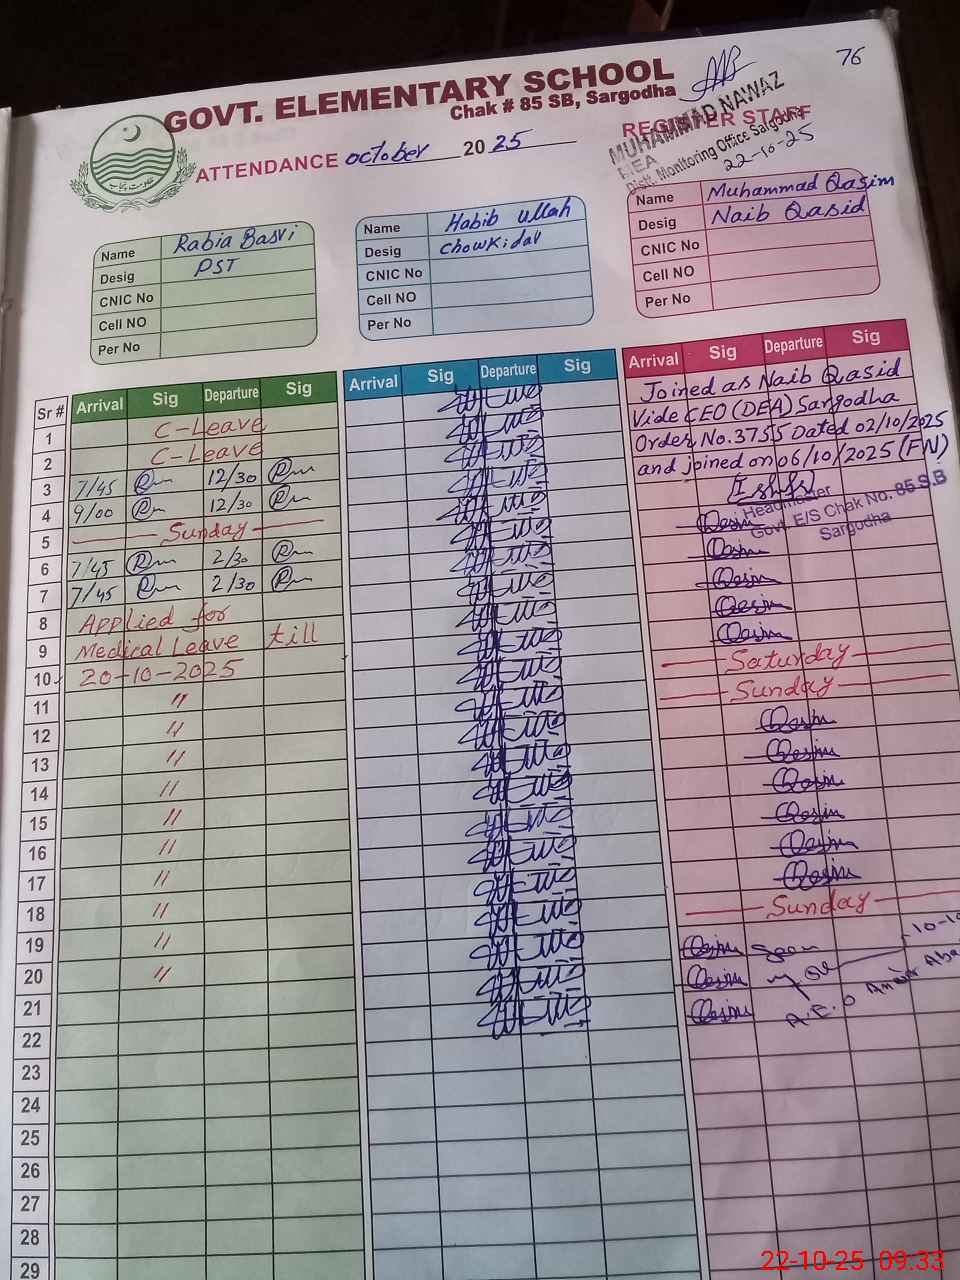 76
GOVT. ELEMENTARY SCHOOL
Chak # 85 SB, Sargodha
ATTENDANCE October 2025
REGISTER STAFF
MUHAMMAD NAWAZ
MEA
Distt. Monitoring Office Sargodha
22-10-25
Name Rabia Basri
Desig PST
CNIC No
Cell NO
Per No
Name Habib ullah
Desig Chowkidar
CNIC No
Cell NO
Per No
Name Muhammad Qasim
Desig Naib Qasid
CNIC No
Cell NO
Per No
Sr # Arrival Sig Departure Sig
1 C-Leave
2 C-Leave
3 7/45 12/30
4 9/00 12/30
5 Sunday
6 7/45 2/30
7 7/45 2/30
8 Applied for
9 Medical Leave till
10 20-10-2025
11 "
12 "
13 "
14 "
15 "
16 "
17 "
18 "
19 "
20 "
21
22
23
24
25
26
27
28
29
Arrival Sig Departure Sig
Arrival Sig Departure Sig
Joined as Naib Qasid
Vide CEO (DEA) Sargodha
Order No. 3755 Dated 02/10/2025
and joined on 06/10/2025 (FN)
Headmaster
Govt. E/S Chak No. 85 S.B
Sargodha
Qasim
Qasim
Qasim
Qasim
Qasim
Saturday
Sunday
Qasim
Qasim
Qasim
Qasim
Qasim
Qasim
Sunday
Qasim Seen
Qasim
Qasim A.E.O
22-10-25 09:33